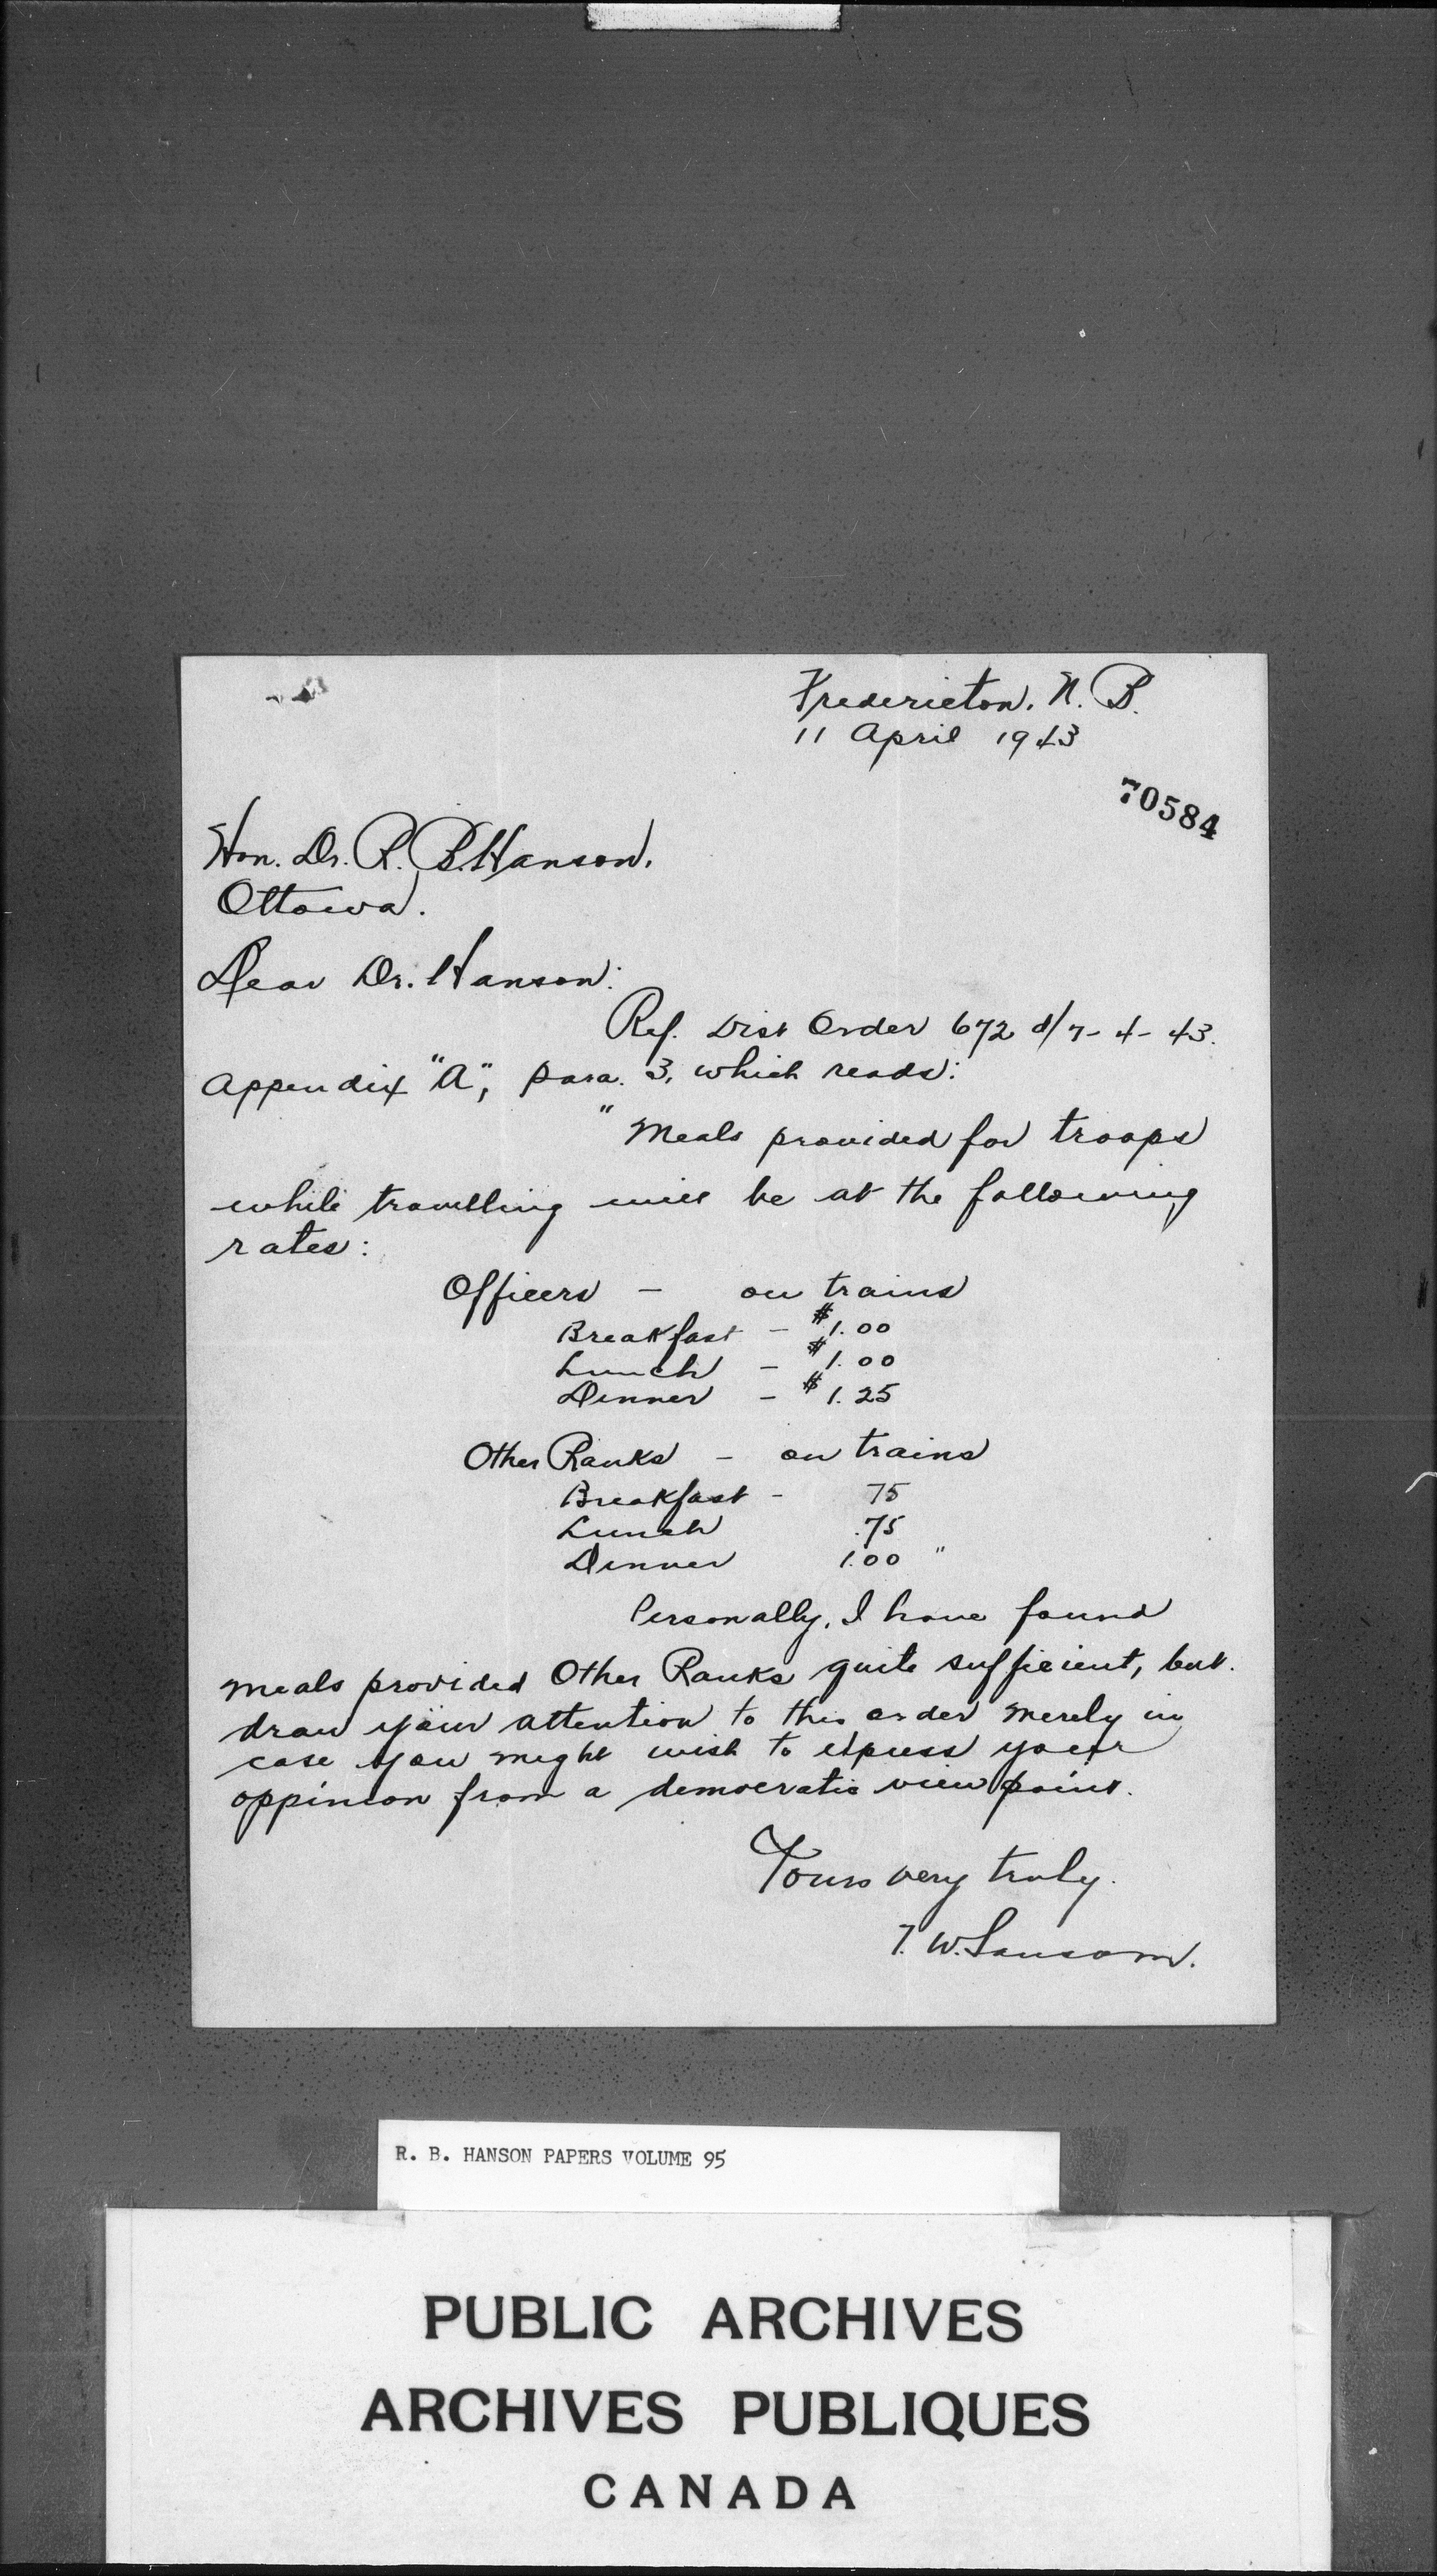 Fredericton, N. B.
11 April 1943
70584
Hon. Dr. R. B. Hanson,
Ottawa.
Dear Dr. Hanson:
Ref. Dist Order 672 d/7-4-43.
Appendix "A", para. 3, which reads:
"Meals provided for troops
while travelling will be at the following
rates:
Officers - on trains
Breakfast - $1.00
Lunch - $1.00
Dinner - $1.25
Other Ranks - on trains
Breakfast - 75
Lunch .75
Dinner 1.00 "
Personally, I have found
meals provided Other Ranks quite sufficient, but
draw your attention to this order merely in
case you might wish to express your
oppinion from a democratic view point.
Yours very truly.
T. W. Sansom.
R. B. HANSON PAPERS VOLUME 95
PUBLIC ARCHIVES
ARCHIVES PUBLIQUES
CANADA